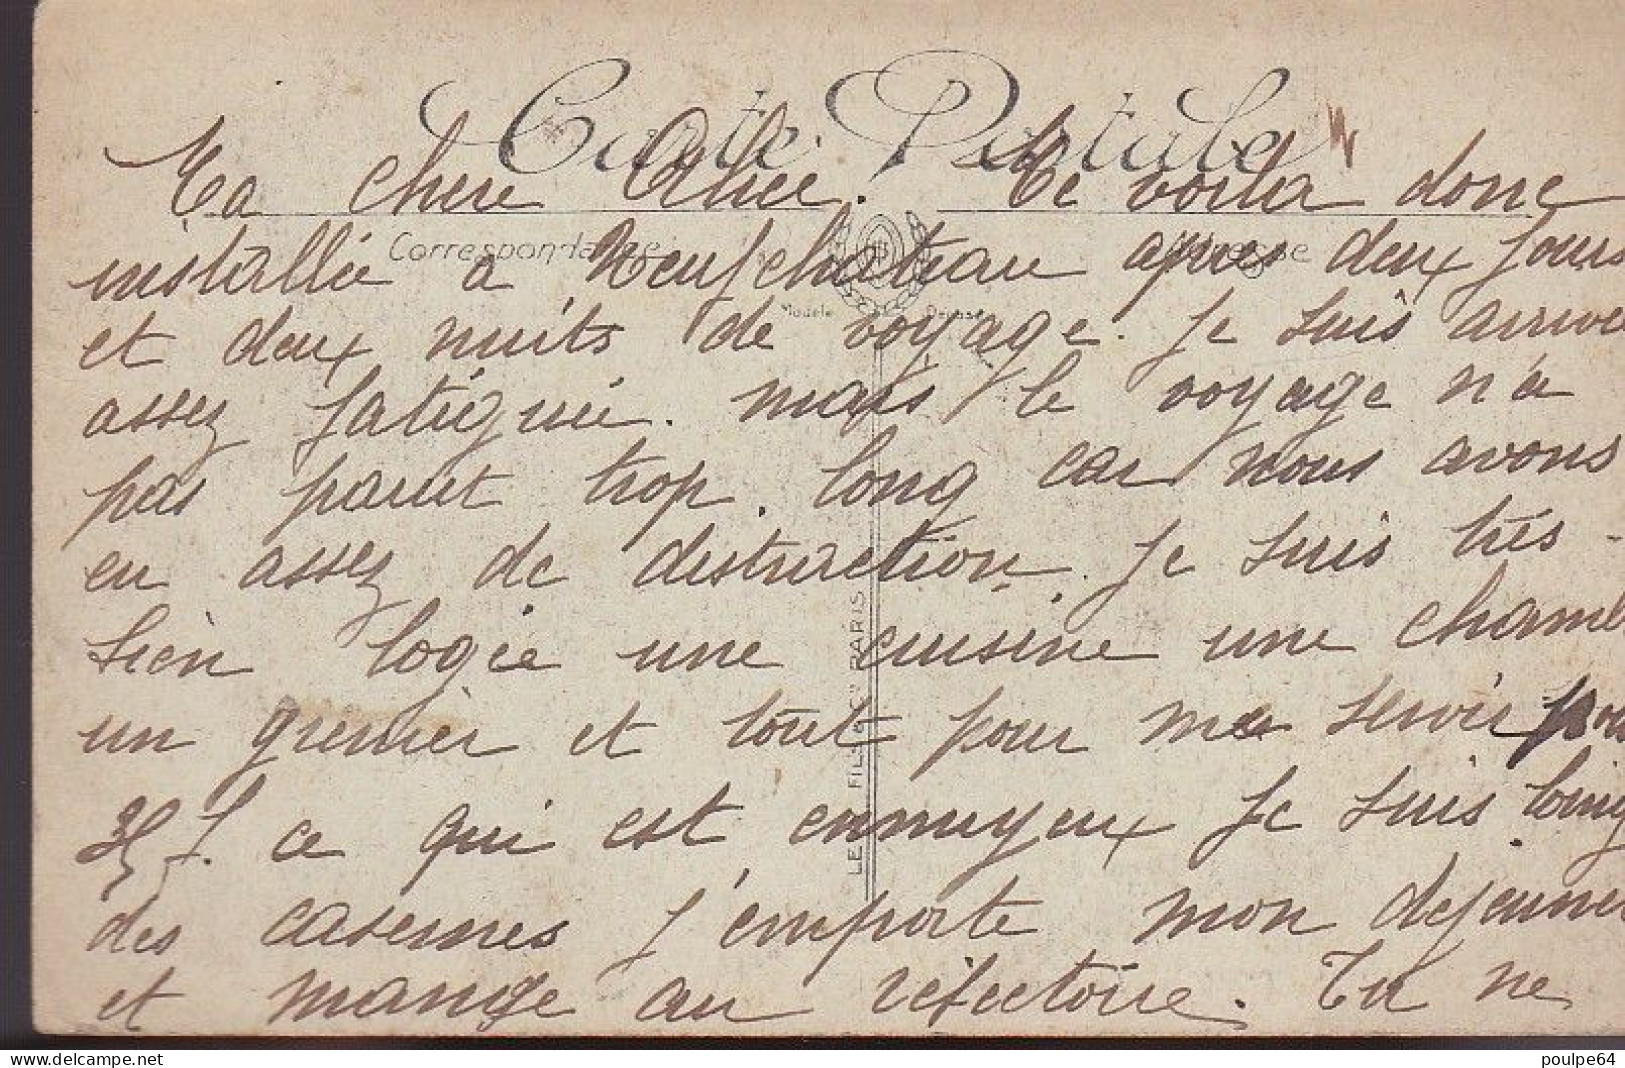 Carte Postale
Ma chere Alice. Me voila donc
Correspondance
Adresse
installée a Neufchateau apres deux jours
Modèle Déposé
et deux nuits de voyage. Je suis arrivée
assez fatiguée. mais le voyage n'a
pas parut trop long car nous avons
eu assez de distraction. Je suis très-
bien logée une cuisine une chamb
un grenier et tout pour me servir pour
35 f. ce qui est ennuyeux Je suis loing
des casernes j'emporte mon dejeuner
et mange au réfectoire. Tu ne
LE FILS "C" PARIS
poulpe64